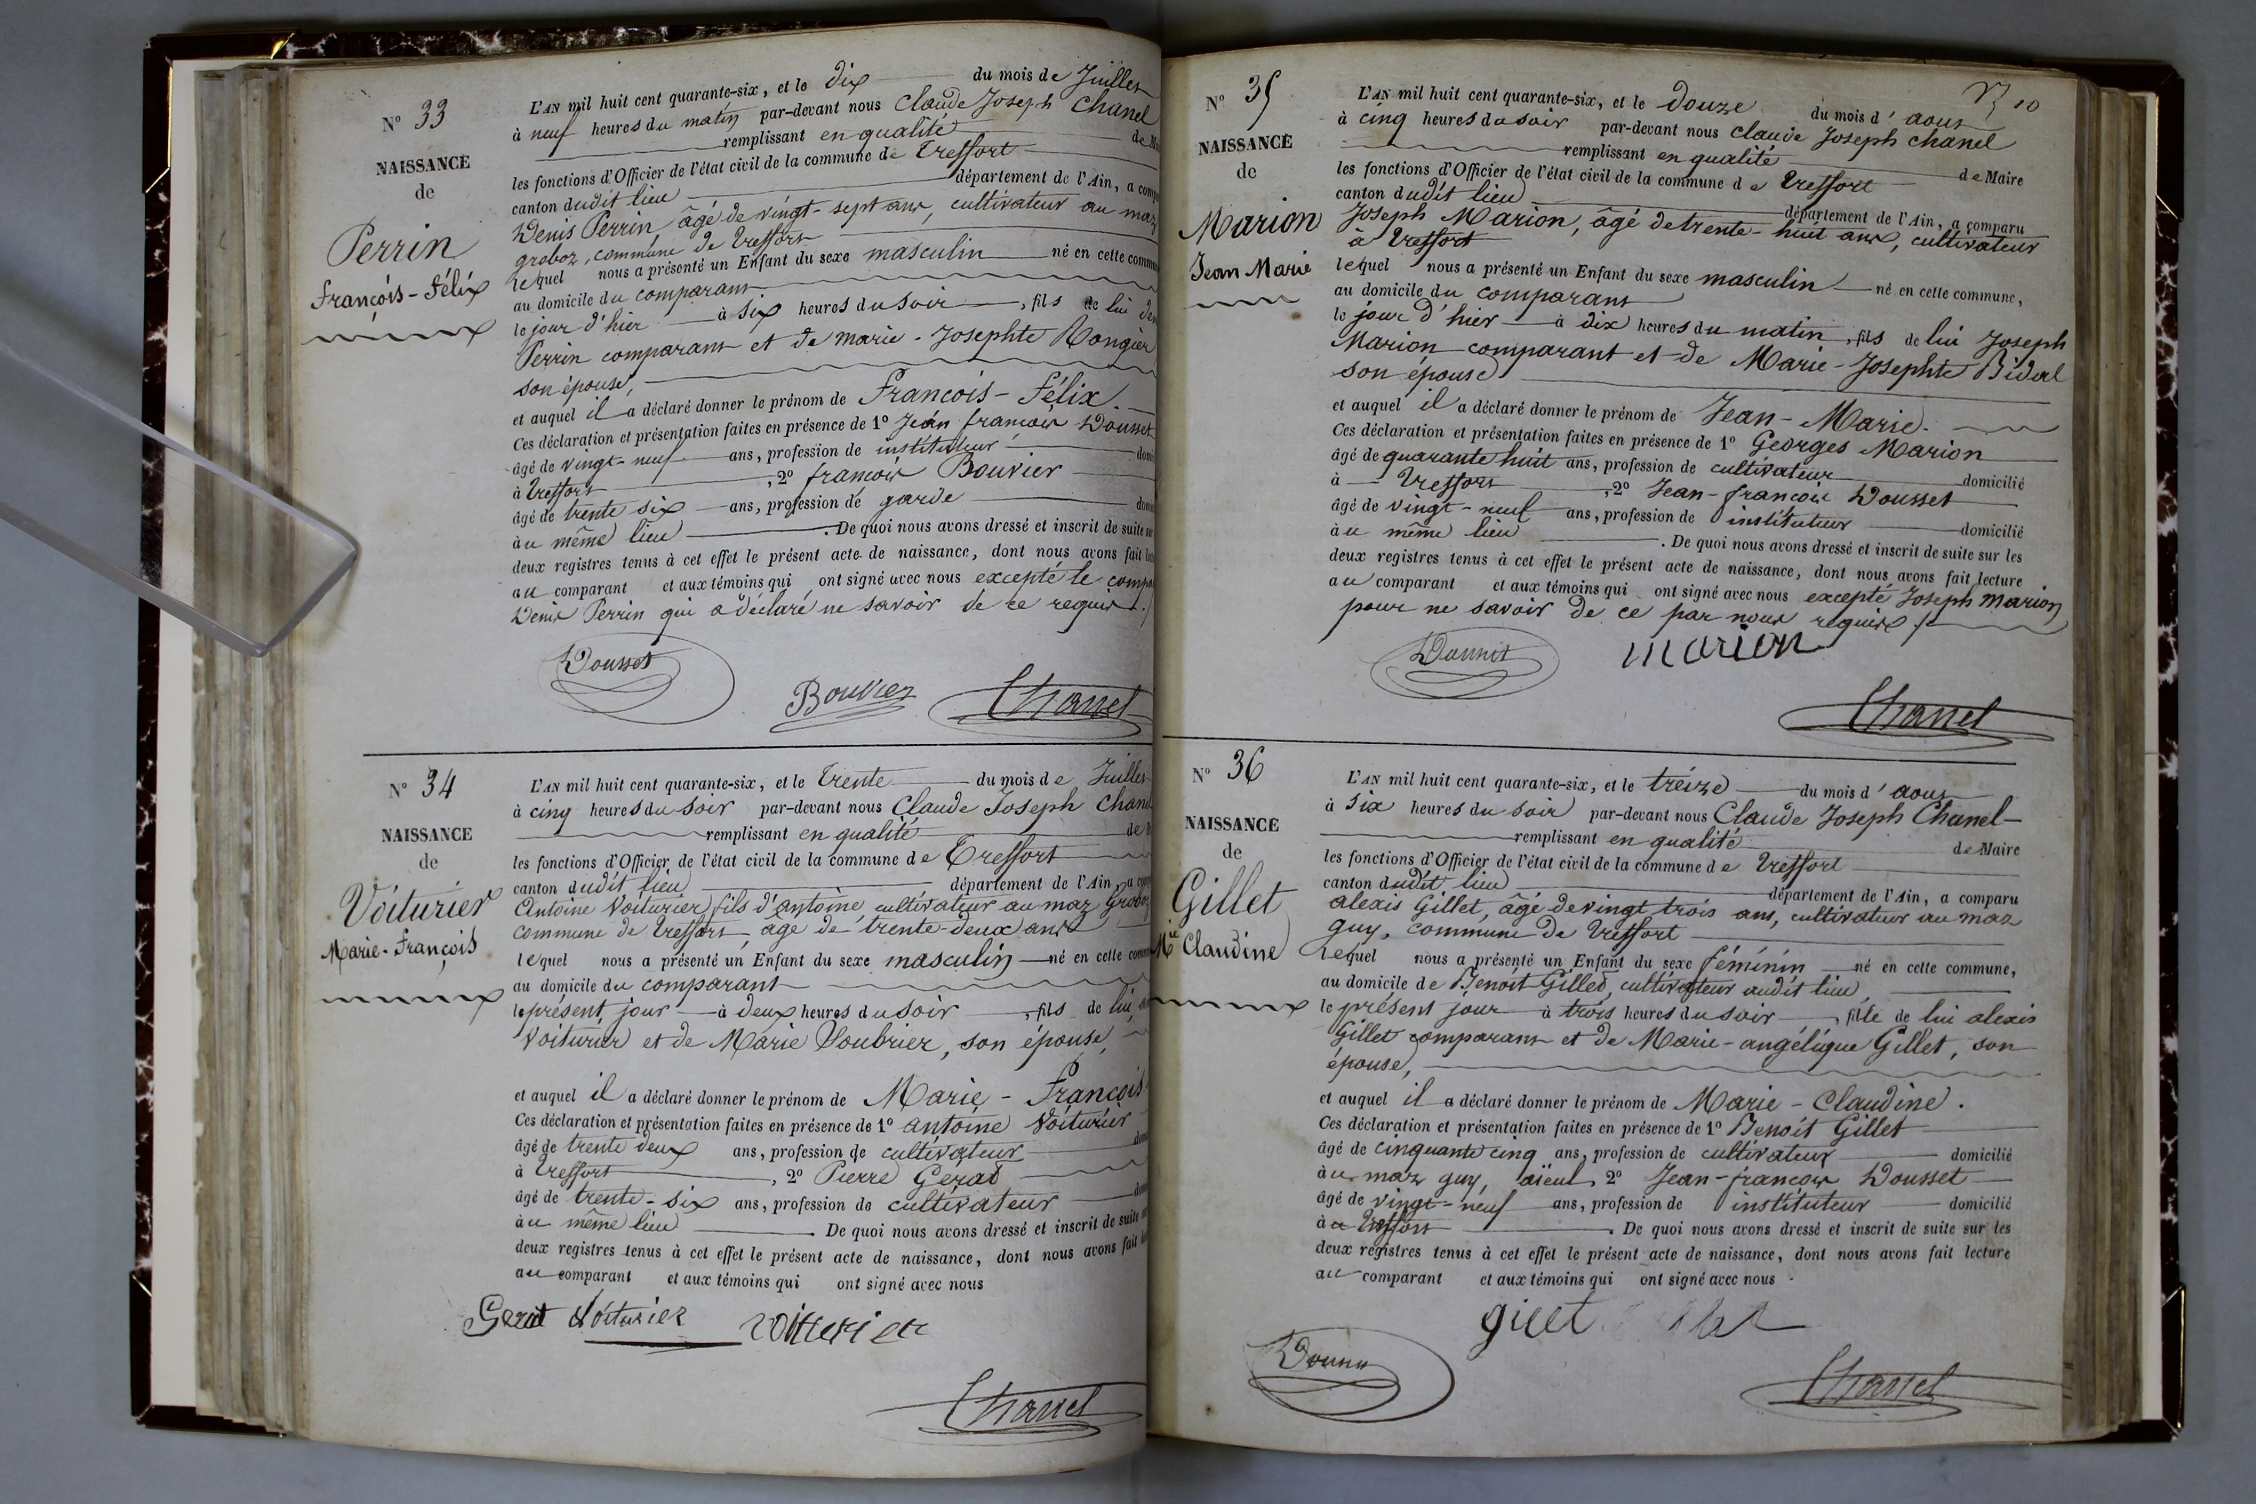 N° 33
NAISSANCE
de
Perrin
François-Félix
L'AN mil huit cent quarante-six, et le dix du mois de Juillet
à neuf heures du matin par-devant nous Claude Joseph Chanel
remplissant en qualité de
les fonctions d'Officier de l'état civil de la commune de Treffort
canton dudit lieu département de l'Ain, a
Denis Perrin, âgé de vingt-sept ans, cultivateur au maz
groboz, commune de Treffort
lequel nous a présenté un Enfant du sexe masculin né en cette
au domicile du comparant
le jour d'hier à six heures du soir, fils de lui
Perrin comparant et de marie-Josephte
son épouse,
et auquel il a déclaré donner le prénom de François-Félix.
Ces déclaration et présentation faites en présence de 1° Jean françois Dousset
âgé de vingt-neuf ans, profession de instituteur
à Treffort, 2° françois Bouvier
âgé de trente six ans, profession de garde
au même lieu. De quoi nous avons dressé et inscrit de suite
deux registres tenus à cet effet le présent acte de naissance, dont nous avons fait
au comparant et aux témoins qui ont signé avec nous excepté le
Denis Perrin qui a déclaré ne savoir de ce requis ./
Dousset
Bouvier
Chanel
N° 34
NAISSANCE
de
Voiturier
Marie-François
L'AN mil huit cent quarante-six, et le trente du mois de Juillet
à cinq heures du soir par-devant nous Claude Joseph
remplissant en qualité de
les fonctions d'Officier de l'état civil de la commune de Treffort
canton dudit lieu département de l'Ain, a
Antoine Voiturier fils d'antoine, cultivateur au maz Groboz
commune de Treffort, âgé de trente-deux ans
lequel nous a présenté un Enfant du sexe masculin né en cette
au domicile du comparant
le présent jour à deux heures du soir, fils de lui
Voiturier et de Marie Soubrier, son épouse,
et auquel il a déclaré donner le prénom de Marie-François
Ces déclaration et présentation faites en présence de 1° antoine Voiturier
âgé de trente deux ans, profession de cultivateur
à Treffort, 2° Pierre Gerat
âgé de trente-six ans, profession de cultivateur
au même lieu. De quoi nous avons dressé et inscrit de suite
deux registres tenus à cet effet le présent acte de naissance, dont nous avons fait
au comparant et aux témoins qui ont signé avec nous
Gerat Voiturier voiturier
Chanel
N° 35
NAISSANCE
de
Marion
Jean Marie
10
L'AN mil huit cent quarante-six, et le douze du mois d'aout
à cinq heures du soir par-devant nous Claude Joseph Chanel
remplissant en qualité de Maire
les fonctions d'Officier de l'état civil de la commune de Treffort
canton dudit lieu département de l'Ain, a comparu
Joseph Marion, âgé de trente-huit ans, cultivateur
à Treffort
lequel nous a présenté un Enfant du sexe masculin né en cette commune,
au domicile du comparant
le jour d'hier à dix heures du matin, fils de lui Joseph
Marion comparant et de Marie-Josephte Bidal
son épouse
et auquel il a déclaré donner le prénom de Jean-Marie.
Ces déclaration et présentation faites en présence de 1° Georges Marion
âgé de quarante huit ans, profession de cultivateur domicilié
à Treffort, 2° Jean-françois Dousset
âgé de vingt-neuf ans, profession de instituteur domicilié
au même lieu. De quoi nous avons dressé et inscrit de suite sur les
deux registres tenus à cet effet le présent acte de naissance, dont nous avons fait lecture
au comparant et aux témoins qui ont signé avec nous excepté Joseph Marion
pour ne savoir de ce par nous requis ./
Dousset
marion
Chanel
N° 36
NAISSANCE
de
Gillet
Mie Claudine
L'AN mil huit cent quarante-six, et le treize du mois d'aout
à six heures du soir par-devant nous Claude Joseph Chanel
remplissant en qualité de Maire
les fonctions d'Officier de l'état civil de la commune de Treffort
canton dudit lieu département de l'Ain, a comparu
alexis Gillet, âgé de vingt trois ans, cultivateur au maz
guy, commune de Treffort
lequel nous a présenté un Enfant du sexe féminin né en cette commune,
au domicile de Benoit Gillet, cultivateur audit lieu,
le présent jour à trois heures du soir, fille de lui alexis
Gillet comparant et de Marie-angélique Gillet, son
épouse,
et auquel il a déclaré donner le prénom de Marie-Claudine.
Ces déclaration et présentation faites en présence de 1° Benoit Gillet
âgé de cinquante cinq ans, profession de cultivateur domicilié
au maz guy, aïeul, 2° Jean-françois Dousset
âgé de vingt-neuf ans, profession de instituteur domicilié
à Treffort. De quoi nous avons dressé et inscrit de suite sur les
deux registres tenus à cet effet le présent acte de naissance, dont nous avons fait lecture
au comparant et aux témoins qui ont signé avec nous.
gillet
Dousset
Chanel